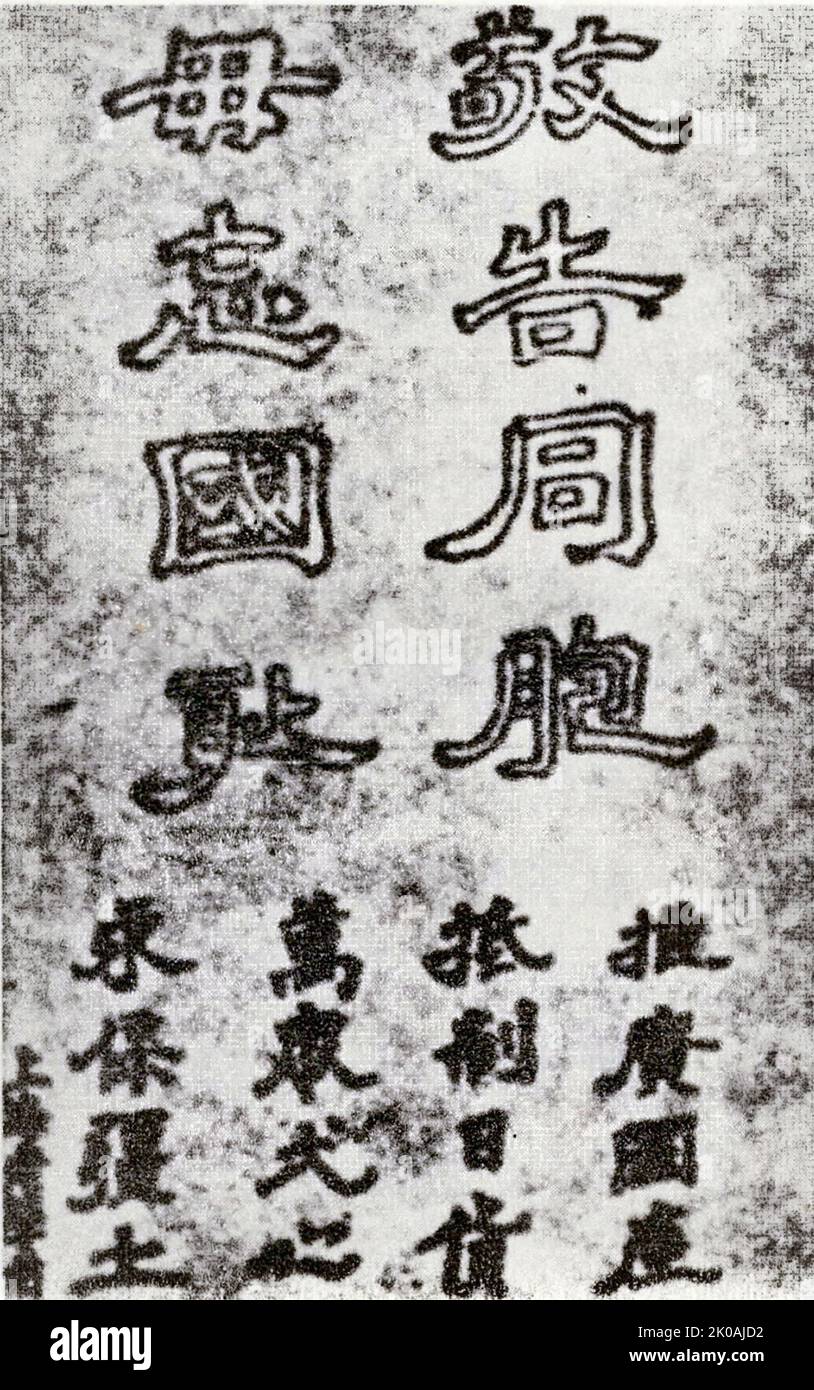 敬告同胞
毋忘國耻
推廣國産
抵制日貨
萬衆弌心
永保疆土
alamy
alamy
Image ID: 2K0AJD2
www.alamy.com